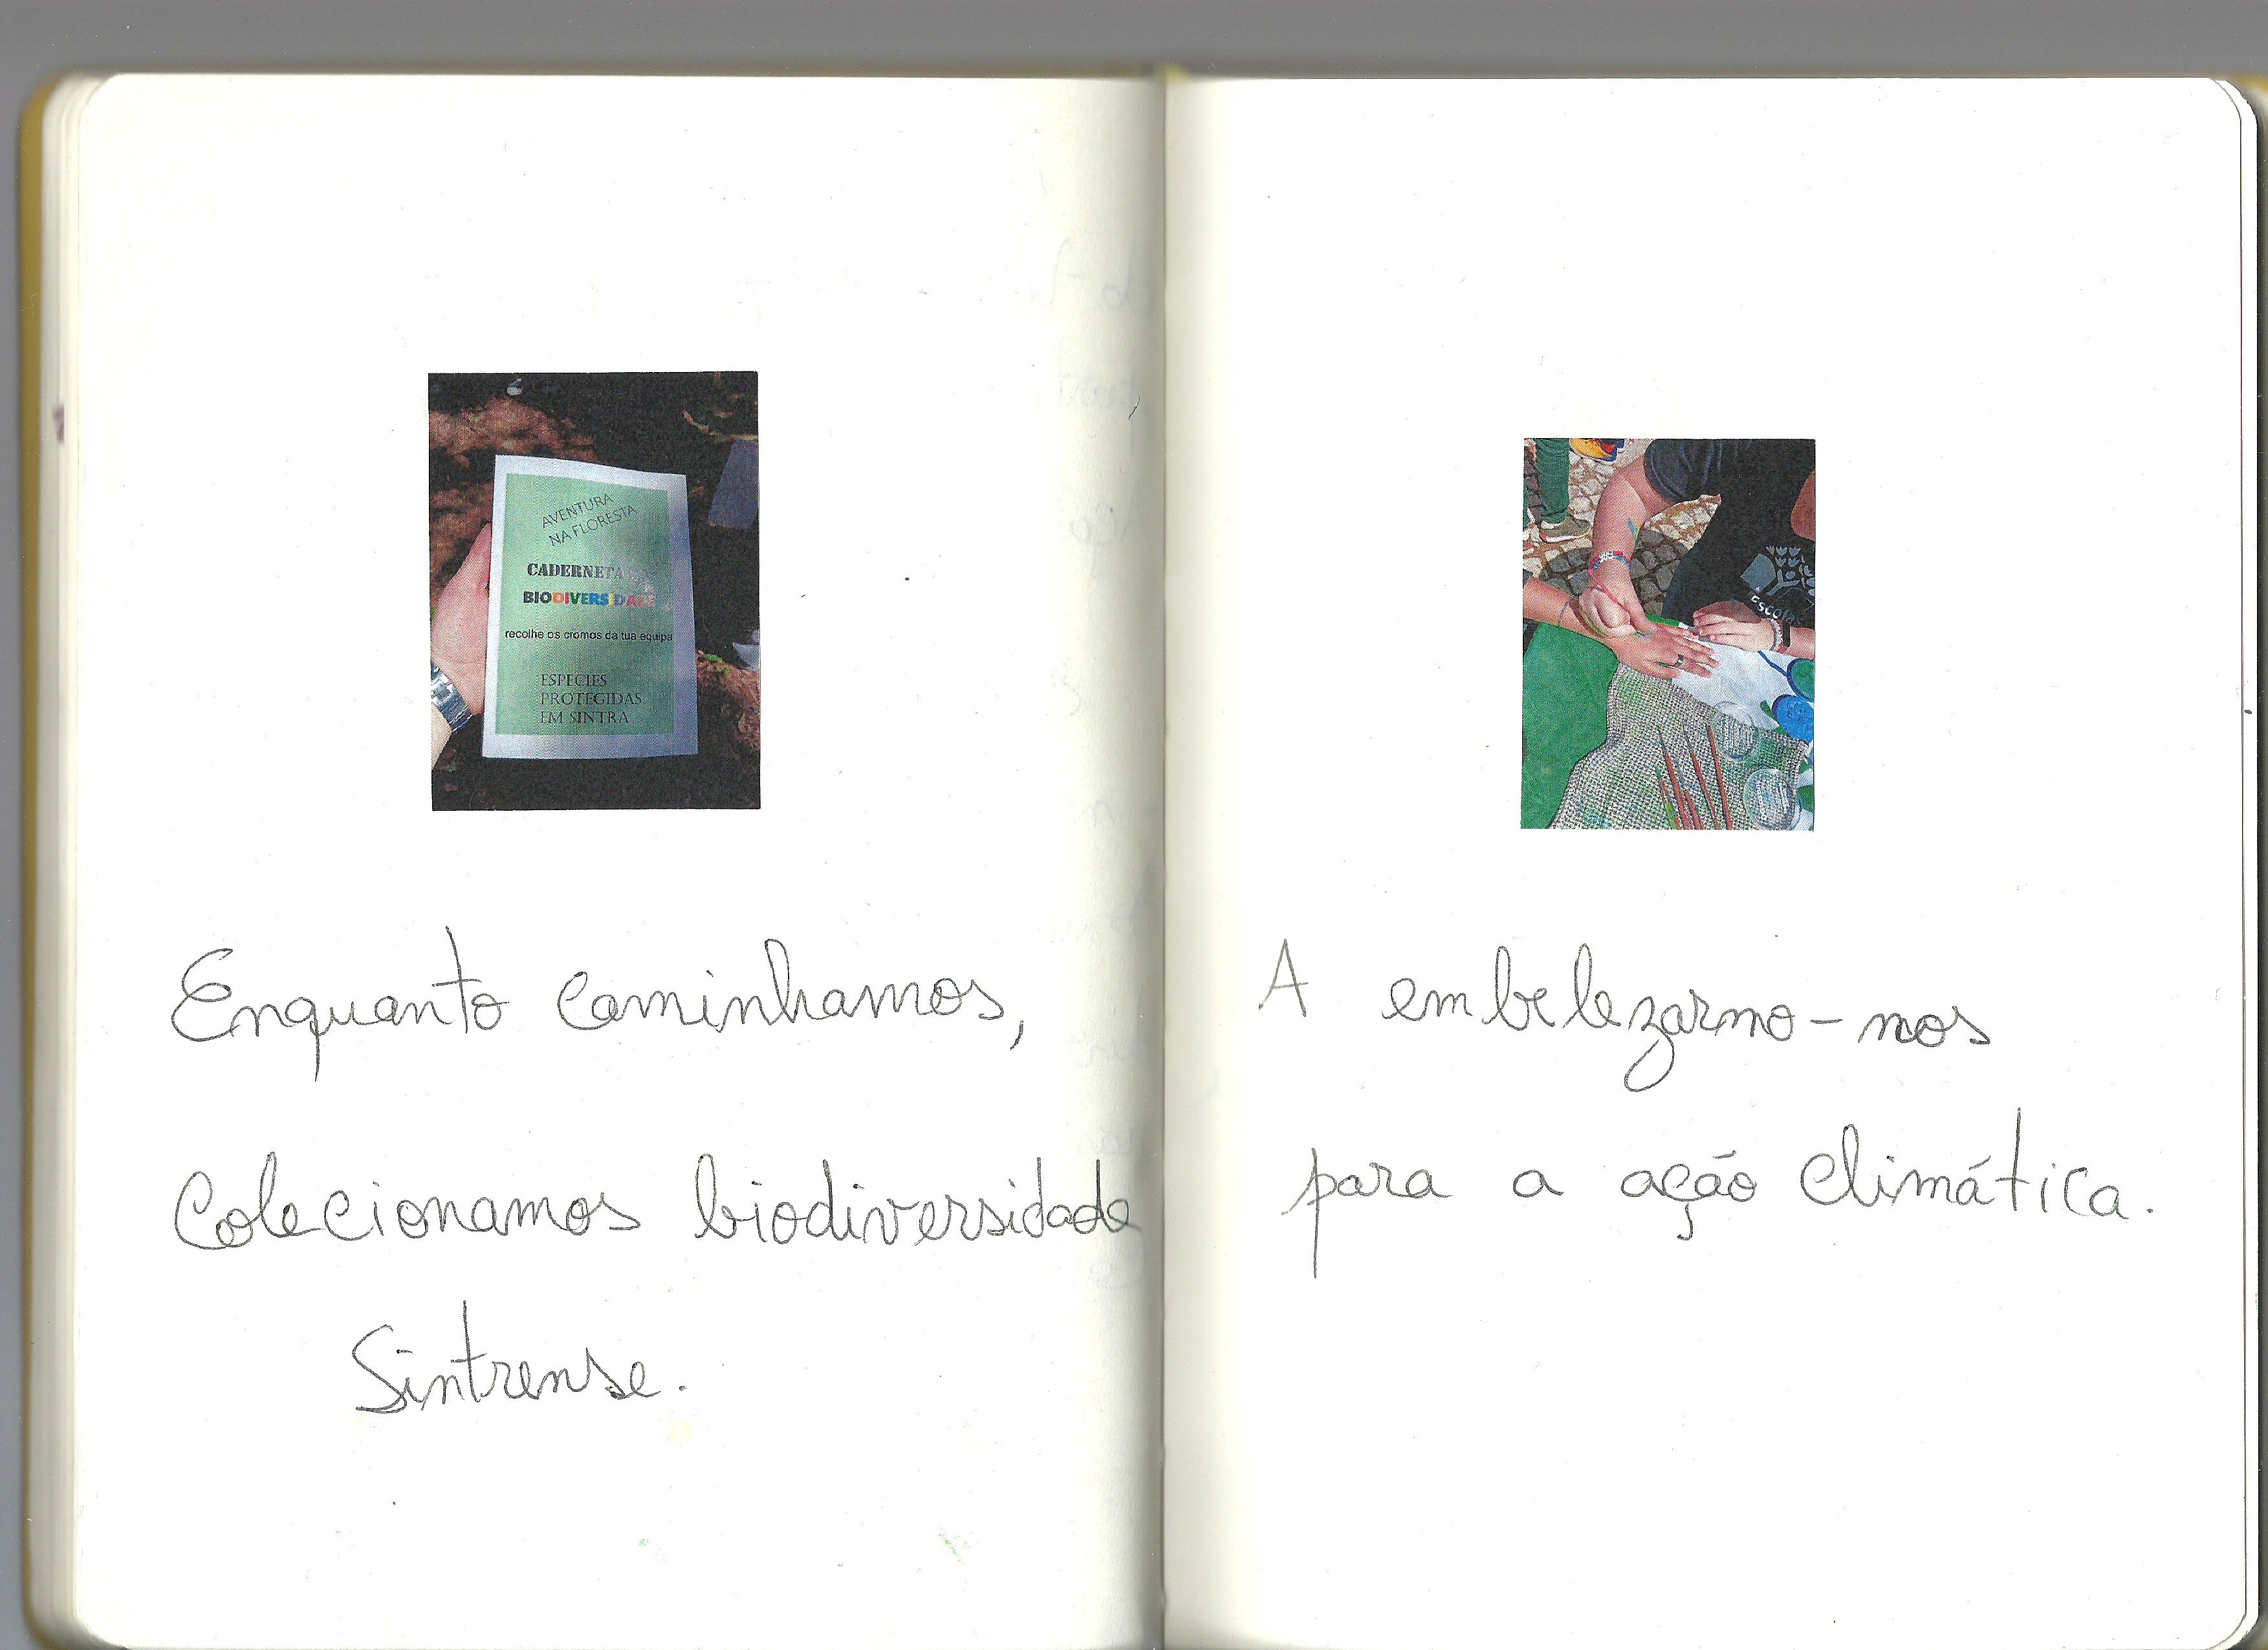 AVENTURA
NA FLORESTA
CADERNETA
BIODIVERSIDADE
recolhe os cromos da tua equipa
ESPECIES
PROTEGIDAS
EM SINTRA
Enquanto caminhamos,
Colecionamos biodiversidade
Sintrense.
Escolas
A embelezarmo-nos
para a ação climática.